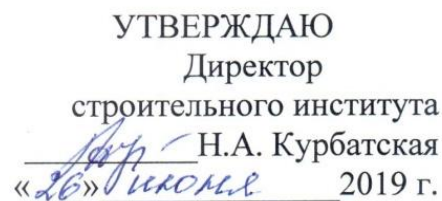 УТВЕРЖДАЮ
Директор
строительного института
Н.А. Курбатская
«26» июня 2019 г.